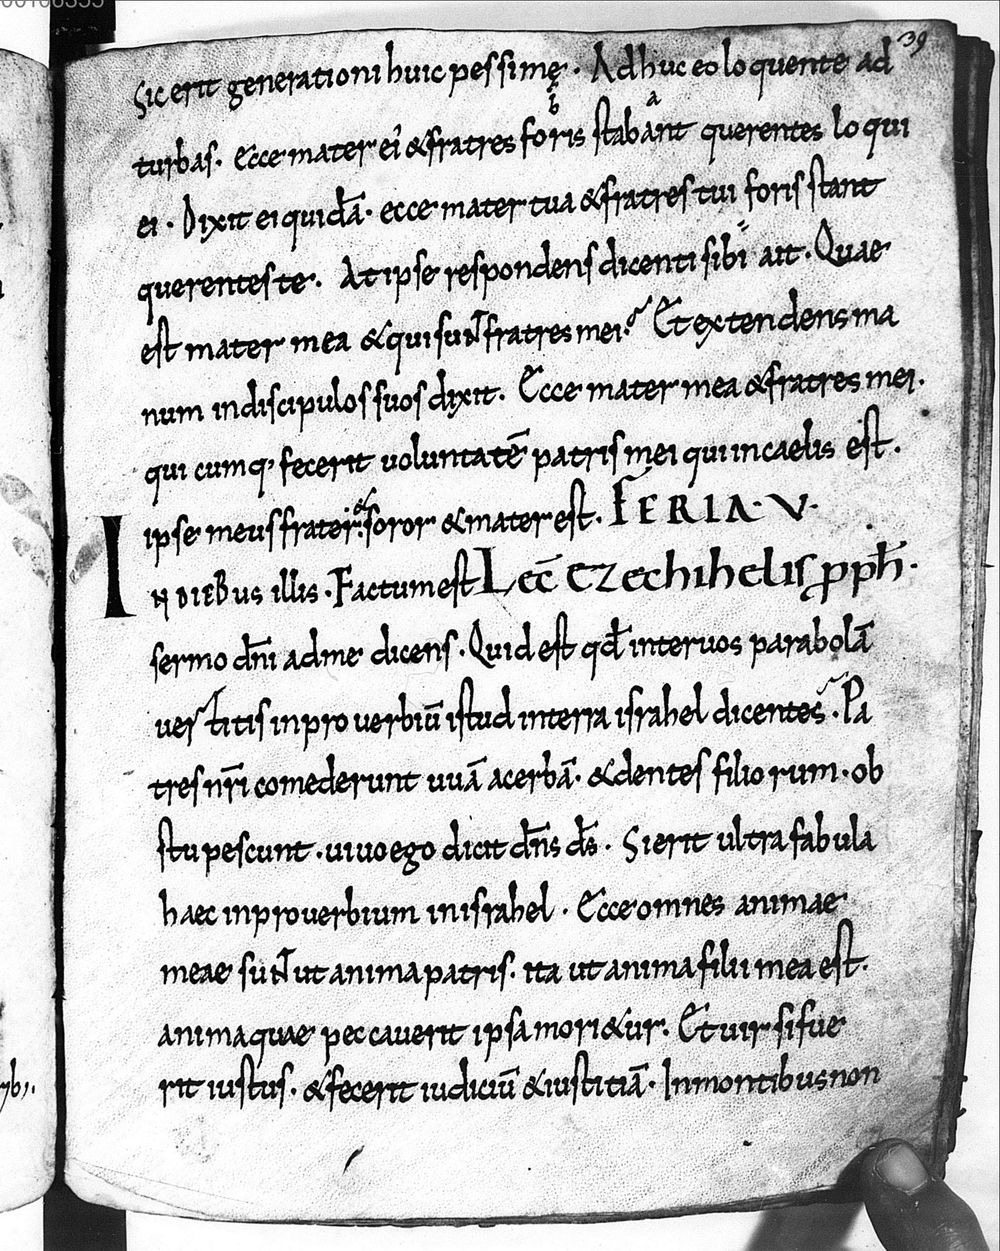 39
sic erit generationi huic pessimę. Adhuc eo loquente ad
turbas. Ecce mater ei' & fratres foris stabant querentes loqui
ei. Dixit ei quidā. ecce mater tua & fratres tui foris stant
querentes te. At ipse respondens dicenti sibi ait. Quae
est mater mea & qui sunt fratres mei? Et extendens ma
num in discipulos suos dixit. Ecce mater mea & fratres mei.
qui cumq; fecerit voluntatē patris mei qui in caelis est.
ipse meus frater & soror & mater est. FERIA. V.
IN DIEBus illis. Factum est Lec̄ Ezechihelis pph̄.
sermo dn̄i ad me dicens. Quid est qd̄ inter uos parabolā
uertitis in prouerbiū istud in terra israhel dicentes. Pa
tres nr̄i comederunt uuā acerbā. & dentes filiorum. ob
stupescunt. uiuo ego dicit dn̄s ds̄. Si erit ultra fabula
haec in prouerbium in israhel. Ecce omnes animae
meae sunt ut anima patris. ita ut anima filii mea est.
anima quae peccauerit ipsa mori&ur. Et uir si fue
rit iustus. & fecerit iudiciū & iustitiā. In montibus non